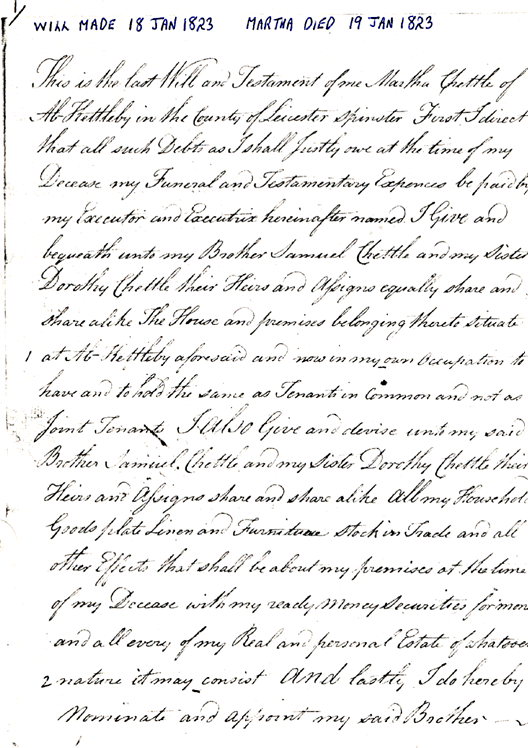 WILL MADE 18 JAN 1823 MARTHA DIED 19 JAN 1823
This is the last Will and Testament of me Martha Chettle of
Ab-Kettleby in the County of Leicester Spinster First I direct
that all such Debts as I shall Justly owe at the time of my
Decease my Funeral and Testamentary Expences be paid by
my Executor and Executrix hereinafter named I Give and
bequeath unto my Brother Samuel Chettle and my Sister
Dorothy Chettle their Heirs and Assigns equally share and
share alike The House and premises belonging thereto situate
1 at Ab-Kettleby aforesaid and now in my own Occupation to
have and to hold the same as Tenants in Common and not as
Joint Tenants I Also Give and devise unto my said
Brother Samuel Chettle and my Sister Dorothy Chettle their
Heirs and Assigns share and share alike All my Household
Goods plate Linen and Furniture Stock in Trade and all
other Effects that shall be about my premises at the time
of my Decease with my ready Money Securities for mon
and all every of my Real and personal Estate of whatever
2 nature it may consist And lastly I do hereby
Nominate and appoint my said Brother